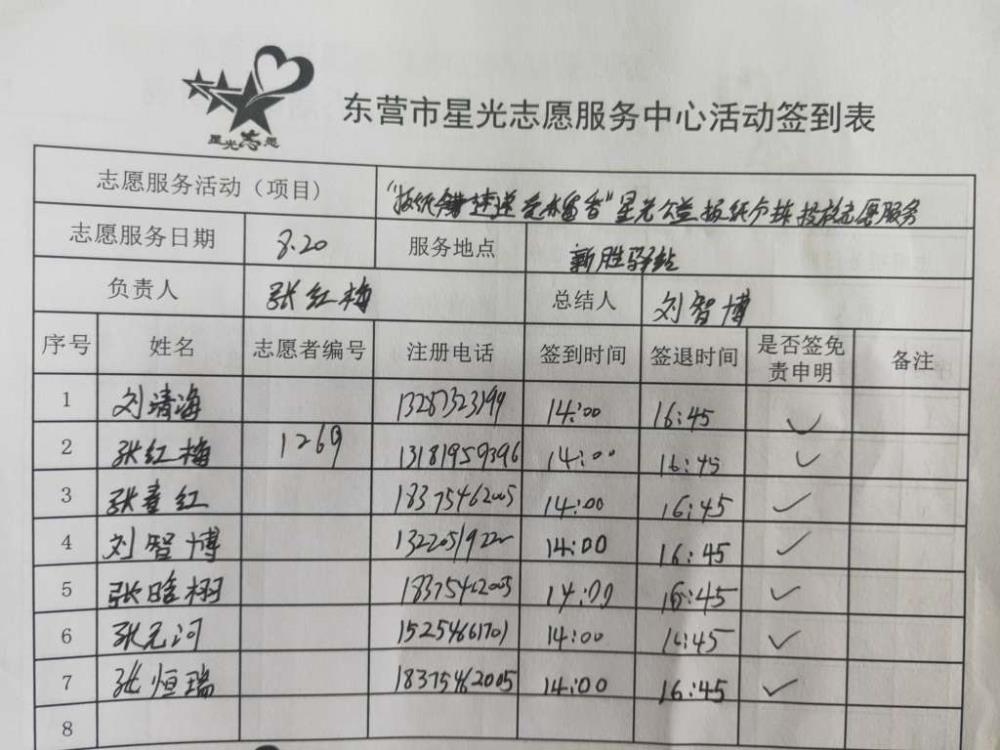 星光志愿
东营市星光志愿服务中心活动签到表
志愿服务活动（项目） "报纸 速递 爱心留香"星光公益报纸分拣投放志愿服务
志愿服务日期 8.20 服务地点 新胜驿站
负责人 张红梅 总结人 刘智博
序号 姓名 志愿者编号 注册电话 签到时间 签退时间 是否签免责申明 备注
1 刘清海 13287323199 14:00 16:45 ✓
2 张红梅 1269 13181959396 14:00 16:45 ✓
3 张喜红 18375462005 14:00 16:45 ✓
4 刘智博 14:00 16:45 ✓
5 张晗栩 18375462005 14:00 16:45 ✓
6 张元河 15254661701 14:00 16:45 ✓
7 张恒瑞 18375462005 14:00 16:45 ✓
8